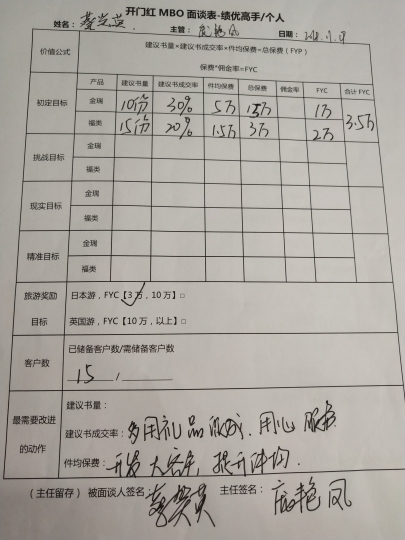 开门红 MBO 面谈表-绩优高手/个人
姓名： 主管：庞艳凤 日期：
价值公式
建议书量×建议书成交率×件均保费=总保费（FYP）
保费*佣金率=FYC
产品 建议书量 建议书成交率 件均保费 总保费 佣金率 FYC 合计 FYC
初定目标
金瑞 10份 30% 5万 15万 1万
福类 15份 20% 1.5万 3万 2万
3.5万
挑战目标
金瑞
福类
现实目标
金瑞
福类
精准目标
金瑞
福类
旅游奖励目标
日本游，FYC【3万，10万】□
英国游，FYC【10万，以上】□
客户数
已储备客户数/需储备客户数
15 /
最需要改进的动作
建议书量：
建议书成交率：多用礼品促成、用心服务
件均保费：开发大客户，提升件均.
（主任留存）被面谈人签名： 主任签名：庞艳凤